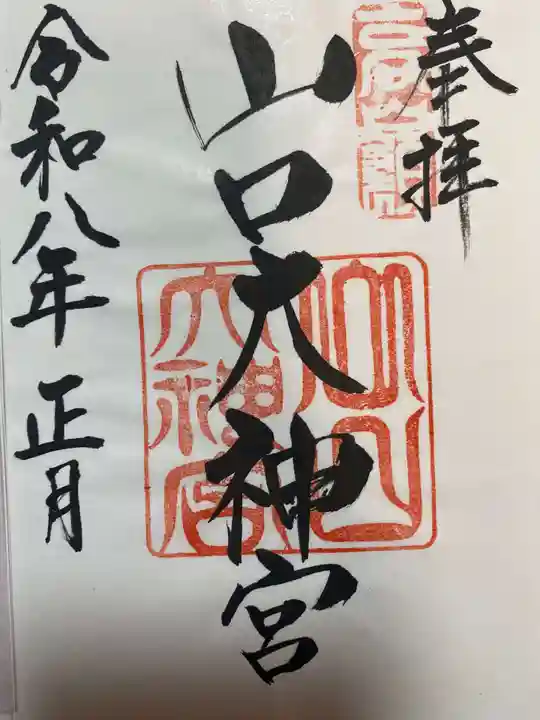 奉拝
山口大神宮
山口
大神宮
令和八年 正月